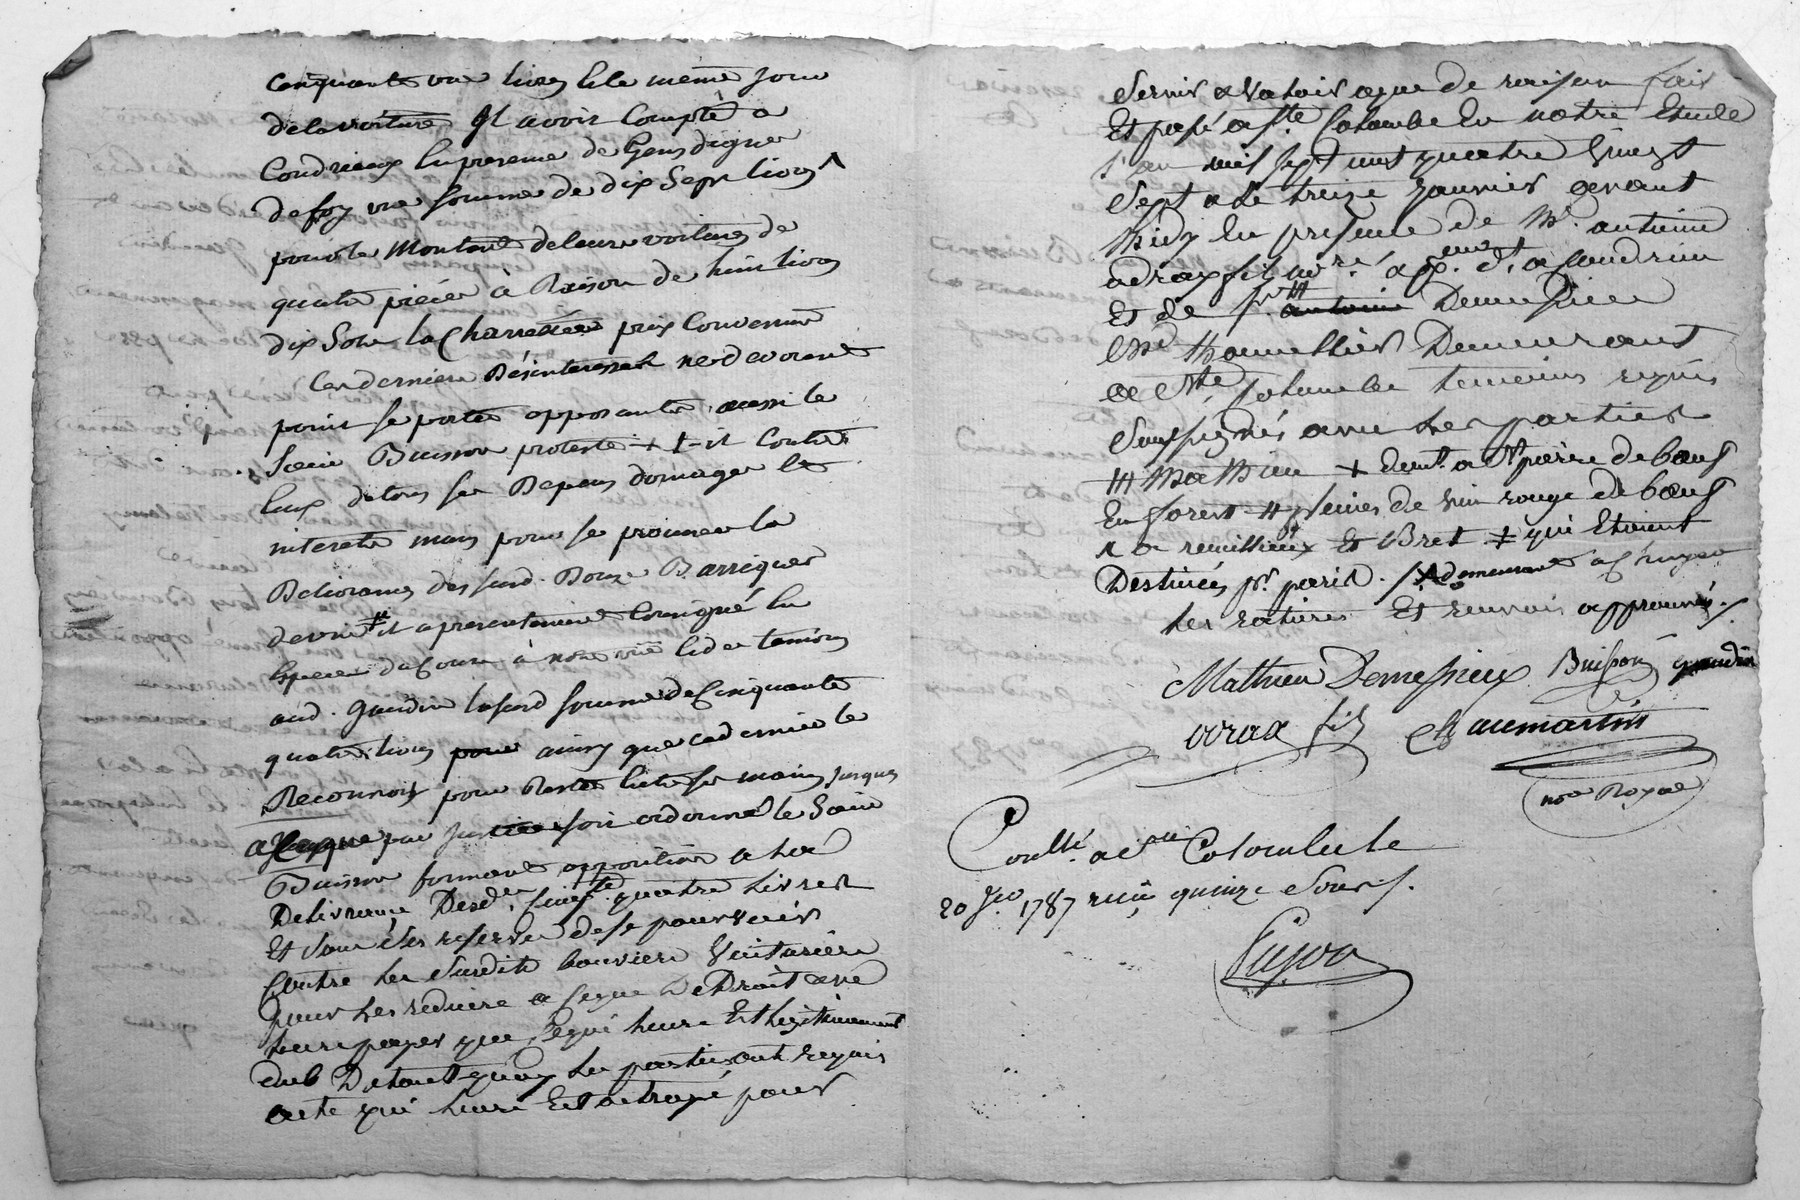 cinquante une livres lele même jour
delavoiture Il avoir Compté a
Condrieux En presence de Gens digne
defoy une somme de dix Sept livres ^
pour le Montant deleurs voitures de
quatre pieces à Raison de huit livres
dix Sols la Charretée prix Convenu
Ces derniers Désinteressés ne devorent
point se porter opposants aussi le
Sieur Buisson proteste + t-il Contre
Eux de tous ses Depens domages et
interets mais pour se procurer la
Delivrance des susd. Douze Barriques
devin # il a presentement Consigné En
Especes de Cours à notre vüe et des temoins
aud. Gaudin lasusd somme de Cinquante
quatre livres ainsy que cedernier le
Reconnoit pour Rester Entre ses mains jusques
a ce que par justice soit ordonné le Sieur
Buisson formant opposition a la
Delivrance Desd. Cinqte. quatre Livres
Et Sous Les reserve dese pourvoir
Contre les Susdits bouviers Voituriers
pour Les reduire a Ceque DeDroit ane
Leur payer que Cequi Leur Est legitimement
dub Detout quoy les parties ont requis
acte qui Leur Est octroyé pour
Servir & Valoir aque de raison fait
Et passé a Ste. Colombe En notre Etude
L'an mil sept cent quatre Vingt
Sept & Le treize Janvier avant
Midy En presence de Mr. antoine
fils
Et de Sr. ♯ Demessieux
Thonnellier Demeurant
a Ste. Colombe temoins requis
Soussignés avec Les parties
♯ Mathieu + demt. a St. pierre de bœuf
En forest # pleines de vin rouge de bœuf
^ a remillieux Et Bret. ‡ qui Etoient
Destinées pr. paris. demeurant a
Les ratures Et renvois approuvés./.
Mathieu Demessieux Buisson gaudin
fils Chaumartin
nore Royal
Conllé. a Ste Colombe Le
20 Jer 1787 reçu quinze Sous./.